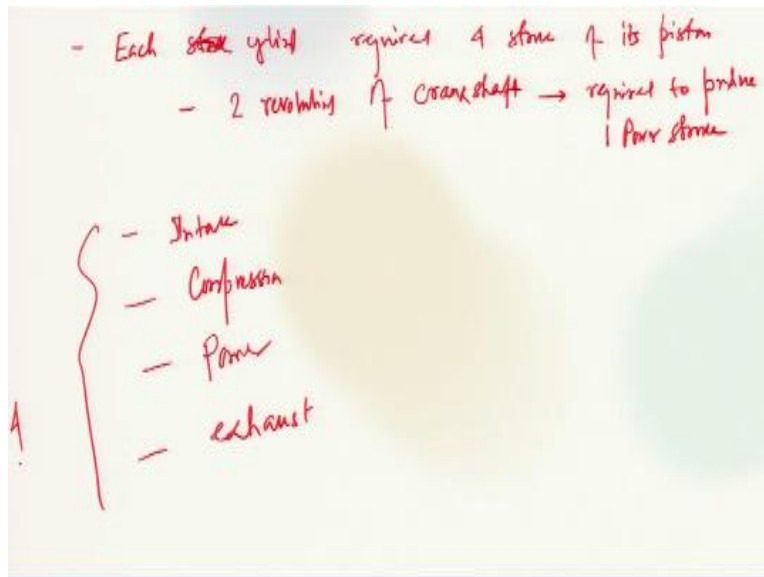 - Each cylind required 4 stroke of its piston
- 2 revolutions of crankshaft → required to produce
1 Power stroke
- Intake
- Compression
- Power
4
- exhaust